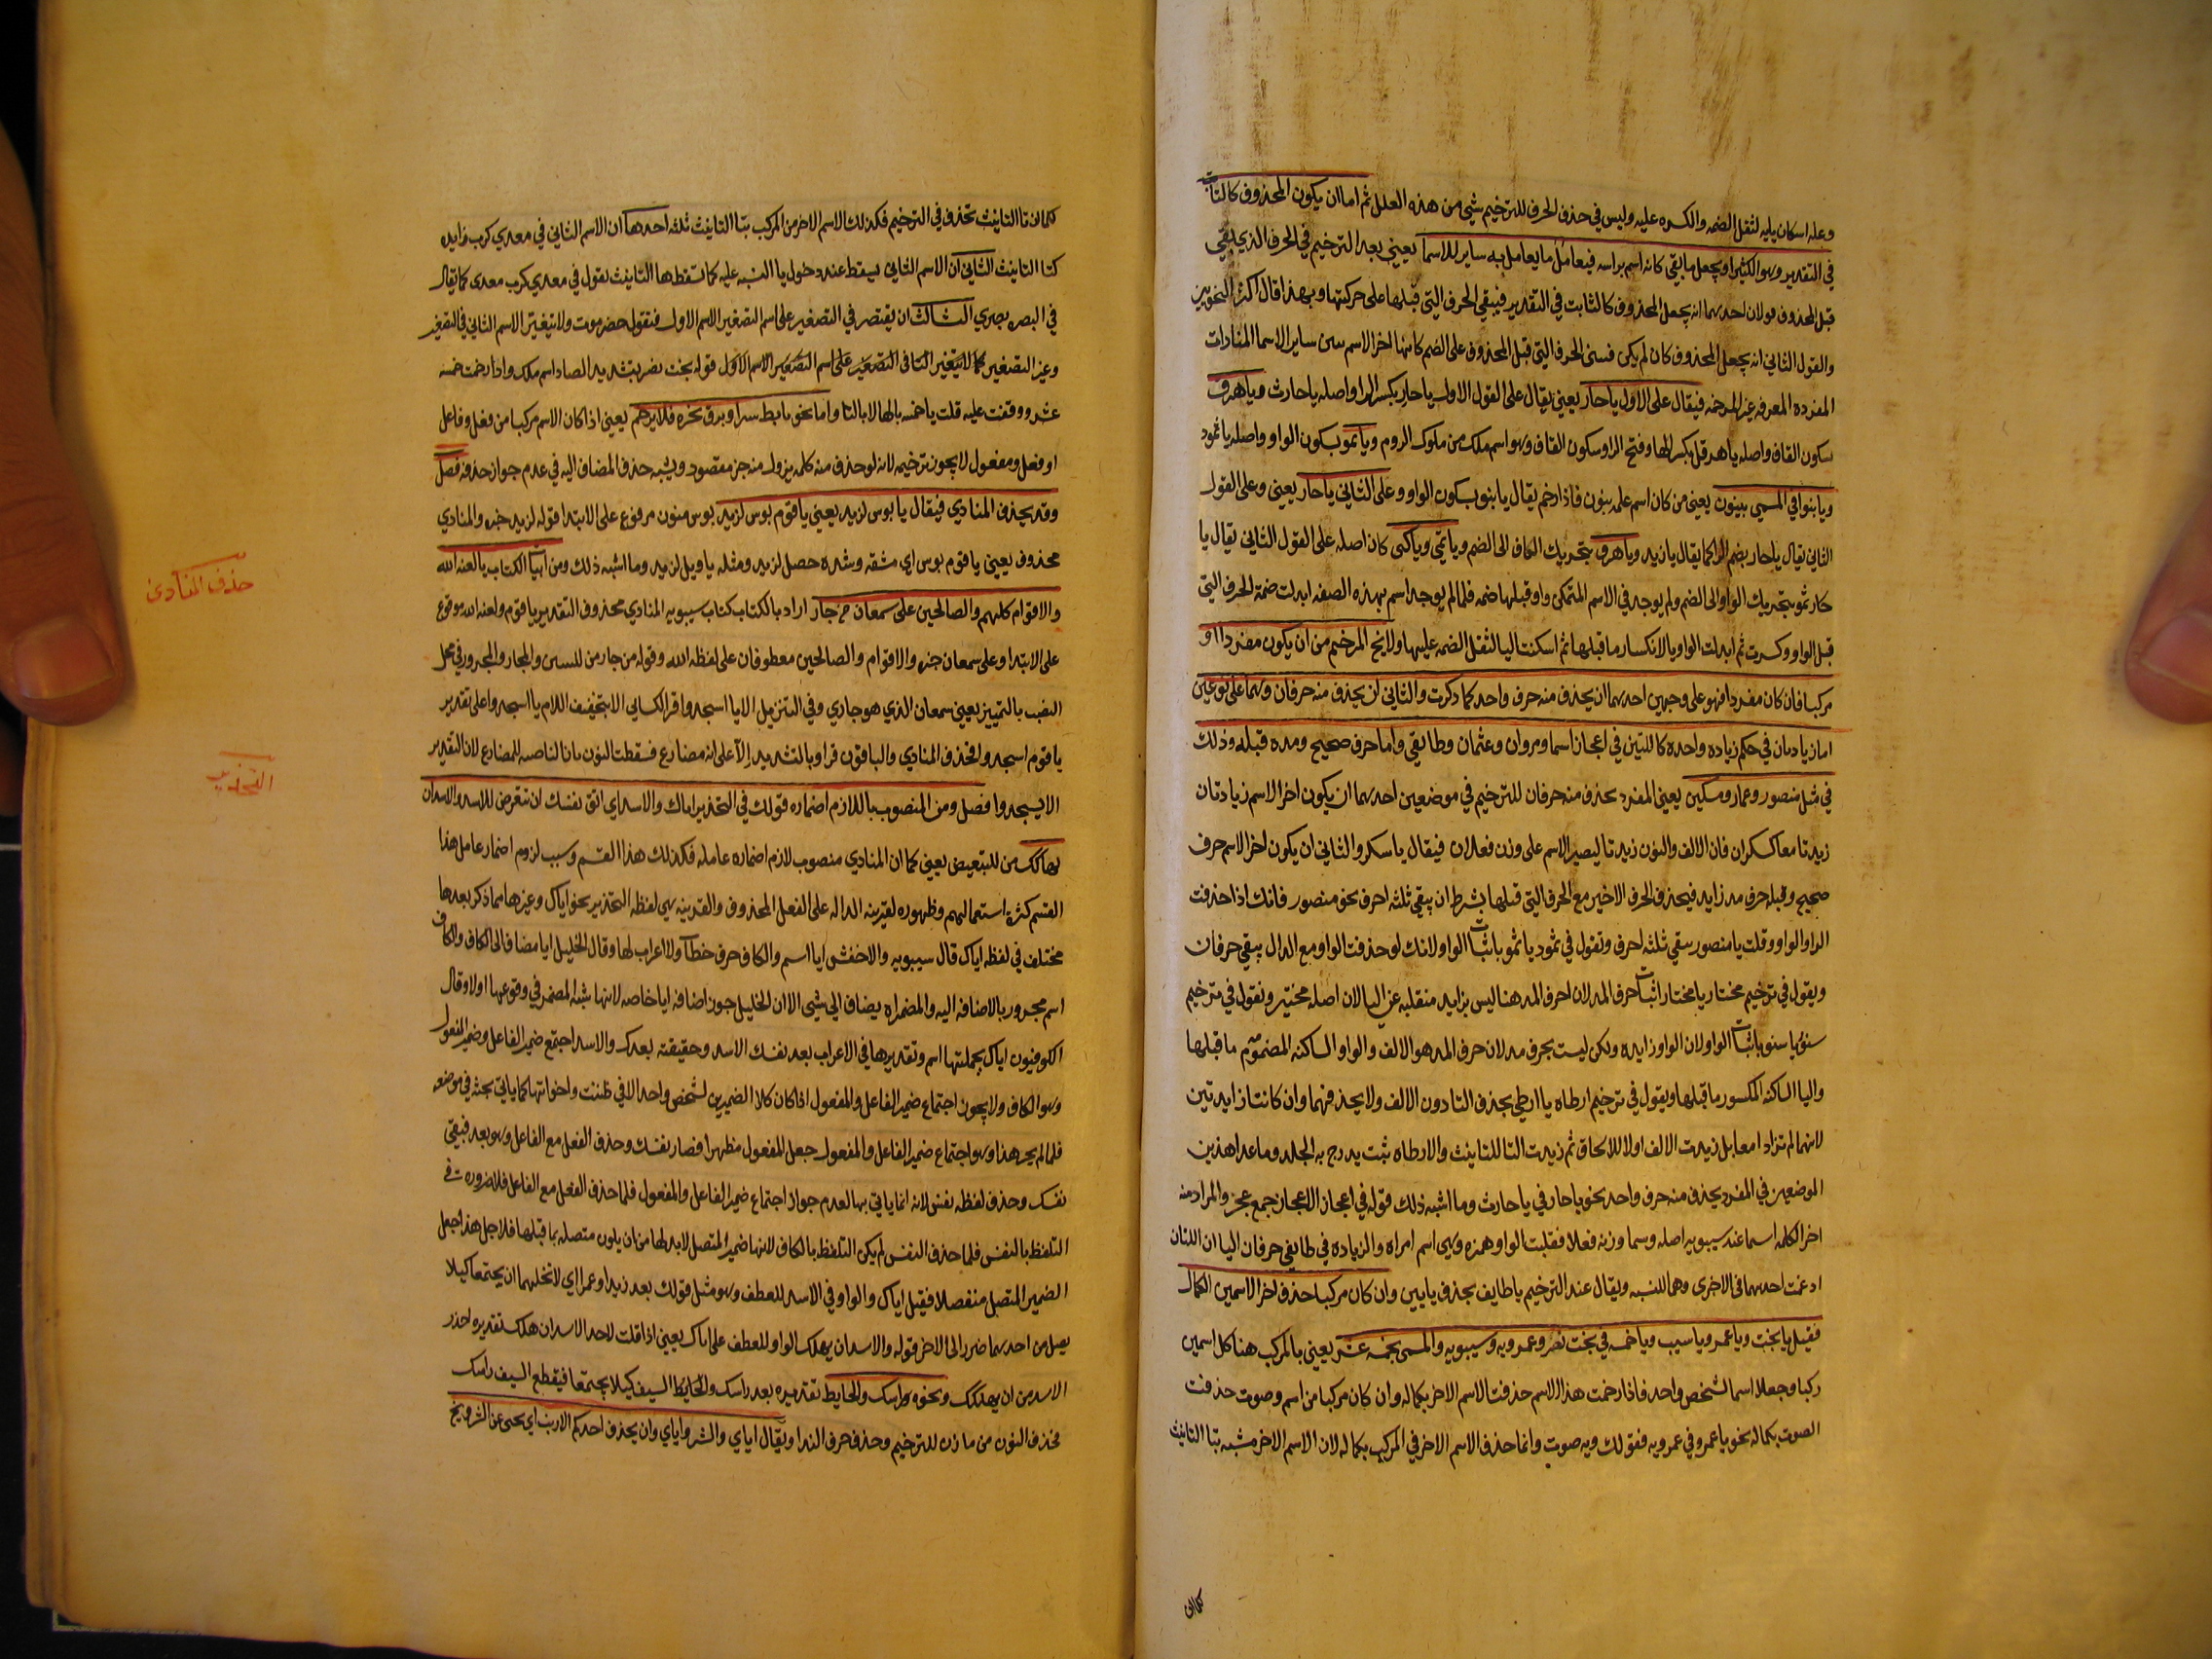 وعله اسكان يليه لثقل الضمه والكسره عليه وليس في حذف الحرف للترخيم شي من هذه العلل ثم اما ان يكون المحذوف كالثابت
في التقدير وهو الكثير او يجعل ما بقي كانه اسم براسه فيعامل ما يعامل به ساير الاسما يعيني بعد الترخيم في الحرف الذي بقي
قبل المحذوف قولان احدهما انه يجعل المحذوف كالثابت في التقدير فيبقي الحرف التي قبلها على حركتها وبهذا قال اكثر النحويين
والقول الثاني انه يجعل المحذوف كان لم يكن فبنى الحرف التي قبل المحذوف على الضم كانها اخر الاسم ساير الاسما المنادات
المفرده المعرفه غير المرخمه فيقال على الاول ياحار يعيني يقال على القول الاول ياحار بكسر الرا واصله ياحارث وياهرق
سكون القاف واصله ياهرقل بكسر الها وفتح الرا وسكون القاف وهو اسم ملك من ملوك الروم وياثمو بسكون الواو واصله ياثمود
ويابنو في المسمي ببنون يعيني من كان اسم علمه بنون فاذا رخم يقال يابنو بسكون الواو وعلى الثاني ياحار يعيني وعلى القول
الثاني يقال ياحار بضم الرا كما يقال يازيد وياهرق بتحريك القاف الى الضم وياثمي وياكى كان اصله على القول الثاني يقال يا
حار ثمو بتحريك الواو الى الضم ولم يوجد في الاسم المتمكن واو قبلها ضمه فلما لم يوجد اسم بهذه الصفه ابدلت ضمة الحرف التي
قبل الواو وكسرت ثم ابدلت الواو يا لانكسار ما قبلها ثم اسكنت اليا لثقل الضمه عليها ولايخ المرخيم من ان يكون مفردا او
مركبا فان كان مفردا فهو على وجهين احدهما ان يحذف منه حرف واحد كما ذكرت والثاني ان يحذف منه حرفان وهما على نوعين
اما زيادتان في حكم زياده واحده كاللتين في اعجاز اسما ومروان وعثمان وطايفي واما حرف صحيح ومده قبله وذلك
في مثل منصور وعمار ومسكين يعيني المفرد يحذف منه حرفان للترخيم في موضعين احدهما ان يكون اخر الاسم زيادتان
زيدتا معا كسكران فان الالف والنون زيدتا ليصير الاسم على وزن فعلان فيقال ياسكر والثاني ان يكون اخر الاسم حرف
صحيح وقبله حرف مد زايد فيحذف الحرف الاخير مع الحرف التي قبلها بشرط ان يبقي ثلثه احرف نحو منصور فانك اذا حذفت
الرا والواو وقلت يا منصور يبقي ثلثه احرف وتقول في ثمود ياثمو باثبات الواو لانك لو حذفت الواو مع الدال يبقي حرفان
ويقول في ترخيم مختار يا مختا باثبات حرف المد لان احرف المد هنا ليس بزايد منقلبه عن اليا لان اصله مختير وتقول في ترخيم
سنور يا سنو باثبات الواو لان الواو زايده ولكن ليست بحرف مد لان حرف المد هو الالف والواو الساكنه المضموم ما قبلها
واليا الساكنه المكسور ما قبلها ويقول في ترخيم ارطاه يا ارطي بحذف التا دون الالف ولا يحذفهما وان كانتا زايدتين
لانهما لم تزادا معا بل زيدت الالف اولا للالحاق ثم زيدت التا للتانيث والارطاه نبت يدرج به الجلد وما عدا هذين
الموضعين في المفرد يحذف منه حرف واحد نحو ياحار في ياحارث وما اشبه ذلك قوله في اعجاز الاعجاز جمع عجز والمراد منه
اخر الكلمه اسما عند سيبويه اصله وسما وزنه فعلا فقلبت الواو همزه وهي اسم امراه والزياده في طايفي حرفان اليا ان اللتان
ادغمت احدهما في الاخرى وهما للنسبه ويقال عند الترخيم ياطايف بحذف يايين وان كان مركبا حذف اخر الاسمين الكمال
فقيل يابخت وياعمر وياسيب وياخمسه في بخت نصر وعمرويه وسيبويه والمسمى بخمسه عشر يعيني بالمركب هنا كل اسمين
ركبا وجعلا اسما لشخص واحد فاذا رخمت هذا الاسم حذفت الاسم الاخر بكماله وان كان مركبا من اسم وصوت حذفت
الصوت بكماله نحو ياعمرو في عمرويه فقولك ويه صوت وانما حذف الاسم الاخر في المركب بكماله لان الاسم الاخر مشبه بتا التانيث
كما ان
كما ان تا التانيث تحذف في الترخيم فكذلك الاسم الاخر من المركب بتا التانيث ثلثه احدها ان الاسم الثاني في معدي كرب زايده
كتا التانيث الثاني ان الاسم الثاني يسقط عند دخول يا النسبه عليه كما تسقط ها التانيث تقول في معدي كرب معدى كما يقال
في البصره بصري الثالث ان يقتصر في التصغير على اسم التصغير الاسم الاول فتقول حضرموت ولا يتغير الاسم الثاني في التصغير
وغير التصغير كما لا يتغير التا في التصغير على اسم التصغير الاسم الاول قوله بخت نصر بتشديد الصاد اسم ملك واذا رخمت خمسه
عشر ووقفت عليه قلت ياخمسه بالها لا بالتا واما نحو تابط شرا وبرق نحره فلا يرخم يعيني اذا كان الاسم مركبا من فعل وفاعل
او فعل ومفعول لا يجوز ترخيمه لانه لو حذف منه كلمه يزول منه جز مقصود ويشبه حذف المضاف اليه في عدم جواز حذفه فصل
وقد يحذف المنادي فيقال يا بوس لزيد يعيني ياقوم بوس لزيد بوس منون مرفوع على الابتدا قوله لزيد خبره والمنادي
محذوف يعيني ياقوم بوس اي مشقه وشده حصل لزيد ومثله ياويل لزيد وما اشبه ذلك ومن ابيات الكتاب يالعنه الله
والاقوام كلهم والصالحين على سمعان من جار اراد بالكتاب كتاب سيبويه المنادي محذوف التقدير ياقوم ولعنه الله مرفوع
على الابتدا وعلى سمعان خبره والاقوام والصالحين معطوفان على لفظه الله وقوله من جار من للتبيين والجار والمجرور في محل
النصب بالتمييز يعيني سمعان الذي هو جاري وفي التنزيل الا يا اسجدوا قرا الكسائي الا بتخفيف اللام يا اسجدوا على تقدير
ياقوم اسجدوا فحذف المنادي والباقون قراوا بالتشديد الا على انه مضارع فسقطت النون بان الناصبه للمضارع لان التقدير
الا يسجدوا فصل ومن المنصوب باللازم اضماره قولك في التحذير اياك والاسد اي اتق نفسك ان تتعرض للاسد والاسد ان
يهالكك من للتبعيض يعيني كما ان المنادي منصوب لازم اضماره عامله فكذلك هذا القسم وسبب لزوم اضمار عامل هذا
القسم كثرة استعمالهم وظهوره لقرينه الداله على الفعل المحذوف والقرينه هي لفظه التحذير نحو اياك وغيرها مما ذكر بعدها
مختلف في لفظه اياك قال سيبويه والاخفش ايا اسم والكاف حرف خطاب ولا اعراب لها وقال الخليل ايا مضاف الى الكاف والكاف
اسم مجرور بالاضافه اليه والمضمراه يضاف الي شي الا ان الخليل جوز اضافه ايا خاصه لانها شبه المضمر في وقوعها اولا وقال
الكوفيون اياك بجملتها اسم وتقديرها في الاعراب بعد نفسك الاسد وحقيقته بعدك والاسد اجتمع ضمير الفاعل وضمير المفعول
وهو الكاف ولا يجوز اجتماع ضمير الفاعل والمفعول اذا كان كلا الضميرين لشخص واحد الا في ظننت واخواتها كما ياتي بحثه في موضعه
فلما لم يجز هذا وهو اجتماع ضمير الفاعل والمفعول جعل المفعول مظهرا فصار نفسك وحذف الفعل مع الفاعل وهو بعد فبقي
نفسك وحذف لفظه نفس لانه انما ياتي بها لعدم جواز اجتماع ضمير الفاعل والمفعول فلما حذف الفعل مع الفاعل فلا ضروره في
التلفظ بالنفس فلما حذف النفس لم يكن التلفظ بالكاف لانها ضمير المتصل لا بد لها من ان يكون متصله بما قبلها فلاجل هذا جعل
الضمير المتصل منفصلا فقيل اياك والواو في الاسد للعطف وهو مثل قولك بعد زيدا وعمرا اي لا تخلهما ان يجتمعا كيلا
يصل من احدهما ضرر الى الاخر قوله والاسد ان يهلك الواو للعطف على اياك يعيني اذا قلت لاحد الاسد ان هلك تقديره احذر
الاسد من ان يهلكك ونحوه راسك والحايط تقديره بعد راسك والحايط السيف كيلا يجتمعا فيقطع السيف راسك
فحذف النون من مازن للترخيم وحذف حرف الندا ويقال اياي والشر واياي وان يحذف احدكم الارنب اي نحى عن الشر ونح
حذف المنادى
التحذير